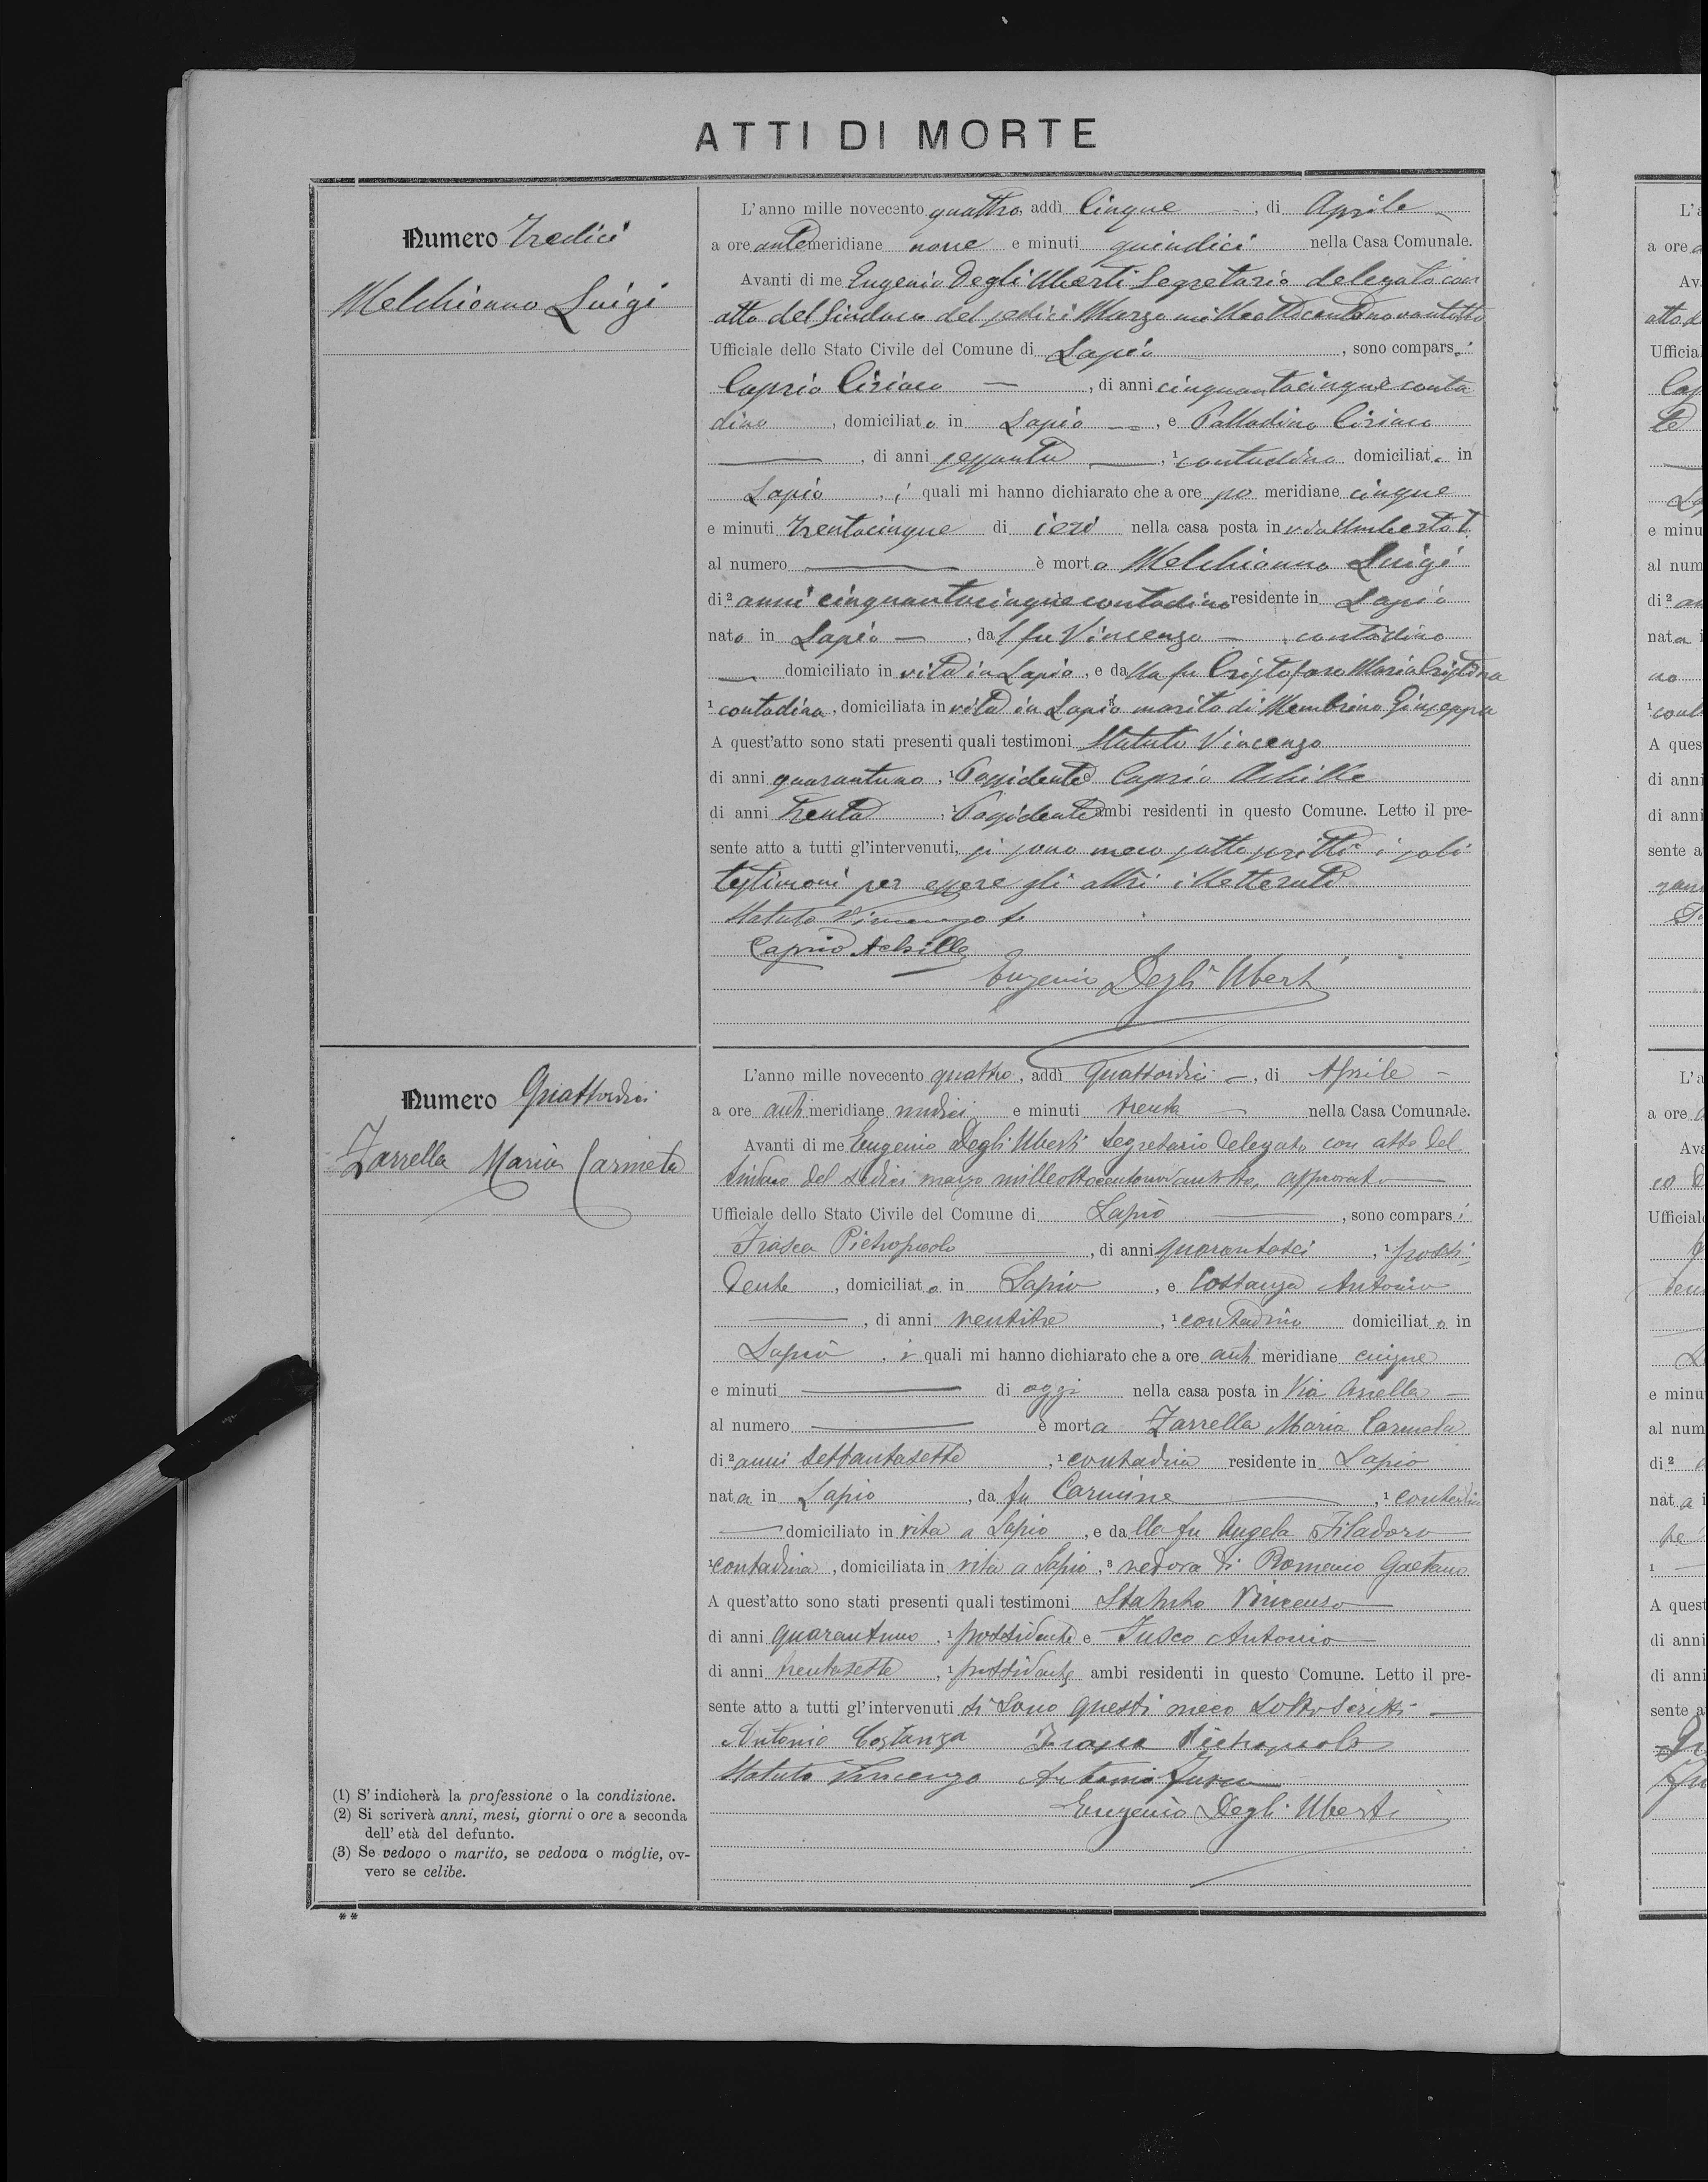 ATTI DI MORTE
Numero Tredici
Melchionno Luigi
L'anno mille novecento quattro, addì Cinque, di Aprile
a ore antemeridiane nove e minuti quindici nella Casa Comunale.
Avanti di me Eugenio Degli Uberti Segretario delegato con
atto del Sindaco del sedici Marzo milleottocentonovantotto
Ufficiale dello Stato Civile del Comune di Lapio, sono comparsi
Caprio Ciriaco, di anni cinquantacinque conta
dino, domiciliato in Lapio, e Palladino Ciriaco
, di anni sessanta, ¹ contadino domiciliato in
Lapio, i quali mi hanno dichiarato che a ore po meridiane cinque
e minuti trentacinque di ieri nella casa posta in via Umberto I
al numero è morto Melchionno Luigi
di ² anni cinquantacinque contadino residente in Lapio
nato in Lapio, dal fu Vincenzo, contadino
domiciliato in vita in Lapio, e dalla fu Cristofaro Maria Cristina
¹ contadina, domiciliata in vita in Lapio ³ marito di Membrino Giuseppa
A quest'atto sono stati presenti quali testimoni Statuto Vincenzo
di anni quarantuno, ¹ Possidente e Caprio Achille
di anni trenta, ¹ Possidente ambi residenti in questo Comune. Letto il pre-
sente atto a tutti gl'intervenuti, si sono meco sottoscritti i soli
testimoni per essere gli altri illetterati
Statuto Vincenzo
Caprio Achille
Eugenio Degli Uberti
Numero Quattordici
Zarrella Maria Carmela
L'anno mille novecento quattro, addì Quattordici, di Aprile
a ore anti meridiane undici e minuti trenta nella Casa Comunale.
Avanti di me Eugenio Degli Uberti Segretario Delegato con atto del
Sindaco del sedici marzo milleottocentonovantotto, approvato
Ufficiale dello Stato Civile del Comune di Lapio, sono comparsi
Frasca Pietropaolo, di anni quarantasei, ¹ possi
dente, domiciliato in Lapio, e Costanza Antonio
, di anni ventitre, ¹ contadino domiciliato in
Lapio, i quali mi hanno dichiarato che a ore anti meridiane cinque
e minuti di oggi nella casa posta in Via
al numero è morta Zarrella Maria Carmela
di ² anni settantasette, ¹ contadina residente in Lapio
nata in Lapio, da fu Carmine, ¹ contadino
domiciliato in vita a Lapio, e dalla fu Angela Filadoro
¹ contadina, domiciliata in vita a Lapio, ³ vedova di Romano Gaetano
A quest'atto sono stati presenti quali testimoni Statuto Vincenzo
di anni quarantuno, ¹ possidente e Fusco Antonio
di anni trentasette, ¹ possidente ambi residenti in questo Comune. Letto il pre-
sente atto a tutti gl'intervenuti si sono questi meco sottoscritti
Antonio Costanza Frasca Pietropaolo
Statuto Vincenzo Antonio Fusco
Eugenio Degli Uberti
(1) S'indicherà la professione o la condizione.
(2) Si scriverà anni, mesi, giorni o ore a seconda
dell'età del defunto.
(3) Se vedovo o marito, se vedova o moglie, ov-
vero se celibe.
**